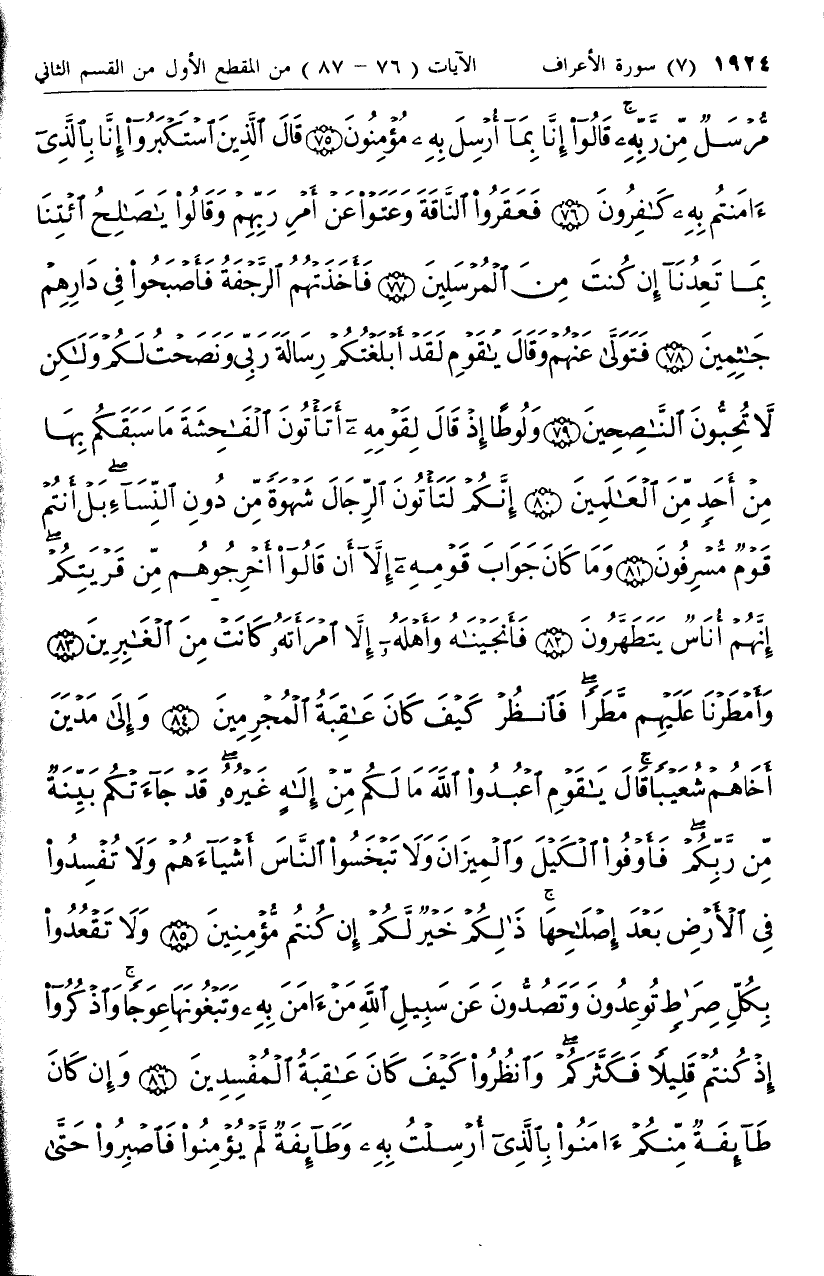 ١٩٢٤ (٧) سورة الأعراف الآيات ( ٧٦ - ٨٧ ) من المقطع الأول من القسم الثاني
مُّرْسَلٌ مِّن رَّبِّهِۦ ۚ قَالُوٓا۟ إِنَّا بِمَآ أُرْسِلَ بِهِۦ مُؤْمِنُونَ ٧٥ قَالَ ٱلَّذِينَ ٱسْتَكْبَرُوٓا۟ إِنَّا بِٱلَّذِىٓ
ءَامَنتُم بِهِۦ كَـٰفِرُونَ ٧٦ فَعَقَرُوا۟ ٱلنَّاقَةَ وَعَتَوْا۟ عَنْ أَمْرِ رَبِّهِمْ وَقَالُوا۟ يَـٰصَـٰلِحُ ٱئْتِنَا
بِمَا تَعِدُنَآ إِن كُنتَ مِنَ ٱلْمُرْسَلِينَ ٧٧ فَأَخَذَتْهُمُ ٱلرَّجْفَةُ فَأَصْبَحُوا۟ فِى دَارِهِمْ
جَـٰثِمِينَ ٧٨ فَتَوَلَّىٰ عَنْهُمْ وَقَالَ يَـٰقَوْمِ لَقَدْ أَبْلَغْتُكُمْ رِسَالَةَ رَبِّى وَنَصَحْتُ لَكُمْ وَلَـٰكِن
لَّا تُحِبُّونَ ٱلنَّـٰصِحِينَ ٧٩ وَلُوطًا إِذْ قَالَ لِقَوْمِهِۦٓ أَتَأْتُونَ ٱلْفَـٰحِشَةَ مَا سَبَقَكُم بِهَا
مِنْ أَحَدٍ مِّنَ ٱلْعَـٰلَمِينَ ٨٠ إِنَّكُمْ لَتَأْتُونَ ٱلرِّجَالَ شَهْوَةً مِّن دُونِ ٱلنِّسَآءِ ۚ بَلْ أَنتُمْ
قَوْمٌ مُّسْرِفُونَ ٨١ وَمَا كَانَ جَوَابَ قَوْمِهِۦٓ إِلَّآ أَن قَالُوٓا۟ أَخْرِجُوهُم مِّن قَرْيَتِكُمْ ۖ
إِنَّهُمْ أُنَاسٌ يَتَطَهَّرُونَ ٨٢ فَأَنجَيْنَـٰهُ وَأَهْلَهُۥٓ إِلَّا ٱمْرَأَتَهُۥ كَانَتْ مِنَ ٱلْغَـٰبِرِينَ ٨٣
وَأَمْطَرْنَا عَلَيْهِم مَّطَرًا ۖ فَٱنظُرْ كَيْفَ كَانَ عَـٰقِبَةُ ٱلْمُجْرِمِينَ ٨٤ وَإِلَىٰ مَدْيَنَ
أَخَاهُمْ شُعَيْبًا ۚ قَالَ يَـٰقَوْمِ ٱعْبُدُوا۟ ٱللَّهَ مَا لَكُم مِّنْ إِلَـٰهٍ غَيْرُهُۥ ۖ قَدْ جَآءَتْكُم بَيِّنَةٌ
مِّن رَّبِّكُمْ ۖ فَأَوْفُوا۟ ٱلْكَيْلَ وَٱلْمِيزَانَ وَلَا تَبْخَسُوا۟ ٱلنَّاسَ أَشْيَآءَهُمْ وَلَا تُفْسِدُوا۟
فِى ٱلْأَرْضِ بَعْدَ إِصْلَـٰحِهَا ۚ ذَٰلِكُمْ خَيْرٌ لَّكُمْ إِن كُنتُم مُّؤْمِنِينَ ٨٥ وَلَا تَقْعُدُوا۟
بِكُلِّ صِرَٰطٍ تُوعِدُونَ وَتَصُدُّونَ عَن سَبِيلِ ٱللَّهِ مَنْ ءَامَنَ بِهِۦ وَتَبْغُونَهَا عِوَجًا ۚ وَٱذْكُرُوٓا۟
إِذْ كُنتُمْ قَلِيلًا فَكَثَّرَكُمْ ۖ وَٱنظُرُوا۟ كَيْفَ كَانَ عَـٰقِبَةُ ٱلْمُفْسِدِينَ ٨٦ وَإِن كَانَ
طَآئِفَةٌ مِّنكُمْ ءَامَنُوا۟ بِٱلَّذِىٓ أُرْسِلْتُ بِهِۦ وَطَآئِفَةٌ لَّمْ يُؤْمِنُوا۟ فَٱصْبِرُوا۟ حَتَّىٰ